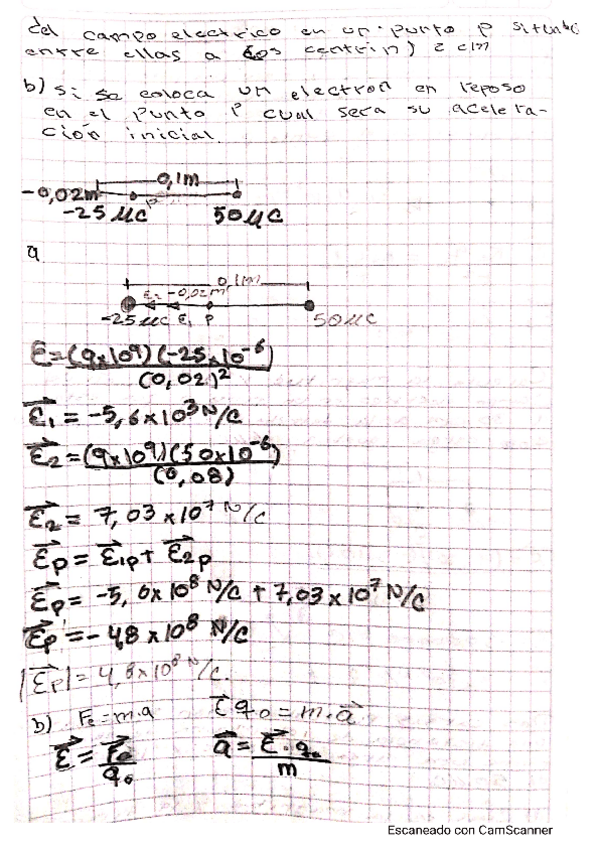 del campo electrico en un punto p situado
entre ellas a dos centrin) 2 cm
b) si se coloca un electron en reposo
en el punto P cual sera su acelera-
ción inicial
0,1m
-0,02m P
-25 μC 50μC
a
0,1m
E2 -0,02m
-25μC E1 P 50μC
E=(9x10⁹)(-25x10⁻⁶)
(0,02)²
E1 = -5,6x10³ N/C
E2=(9x10⁹)(50x10⁻⁶)
(0,08)
E2 = 7,03 x10⁷ N/C
Ep = E1p+ E2p
Ep = -5,6x10⁸ N/C + 7,03x10⁷ N/C
Ep = -4,8 x10⁸ N/C
|Ep|= 4,8x10⁸ N/C.
b) Fe=m.a E q₀ = m.a
E = Fe/q₀ a = E.q₀/m
Escaneado con CamScanner